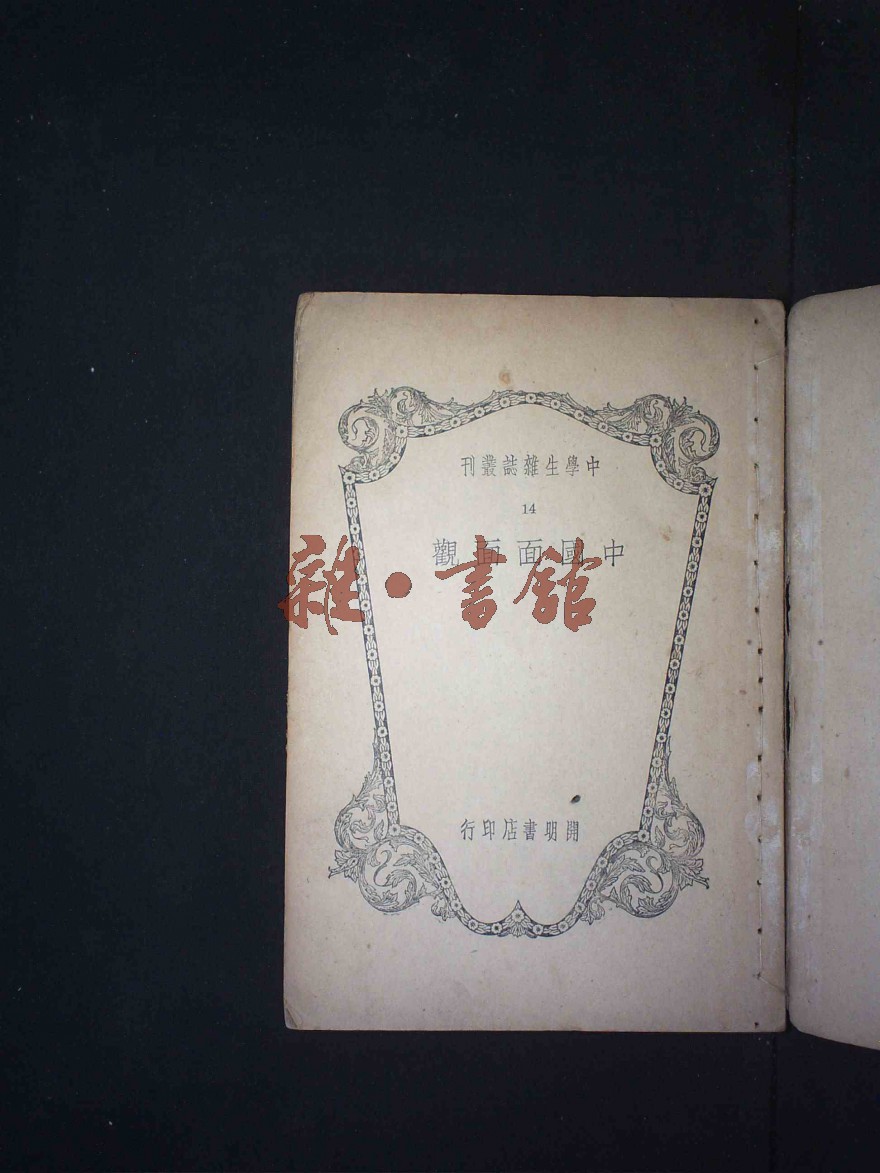 中學生雜誌叢刊
14
中國面面觀
雜·書館
開明書店印行